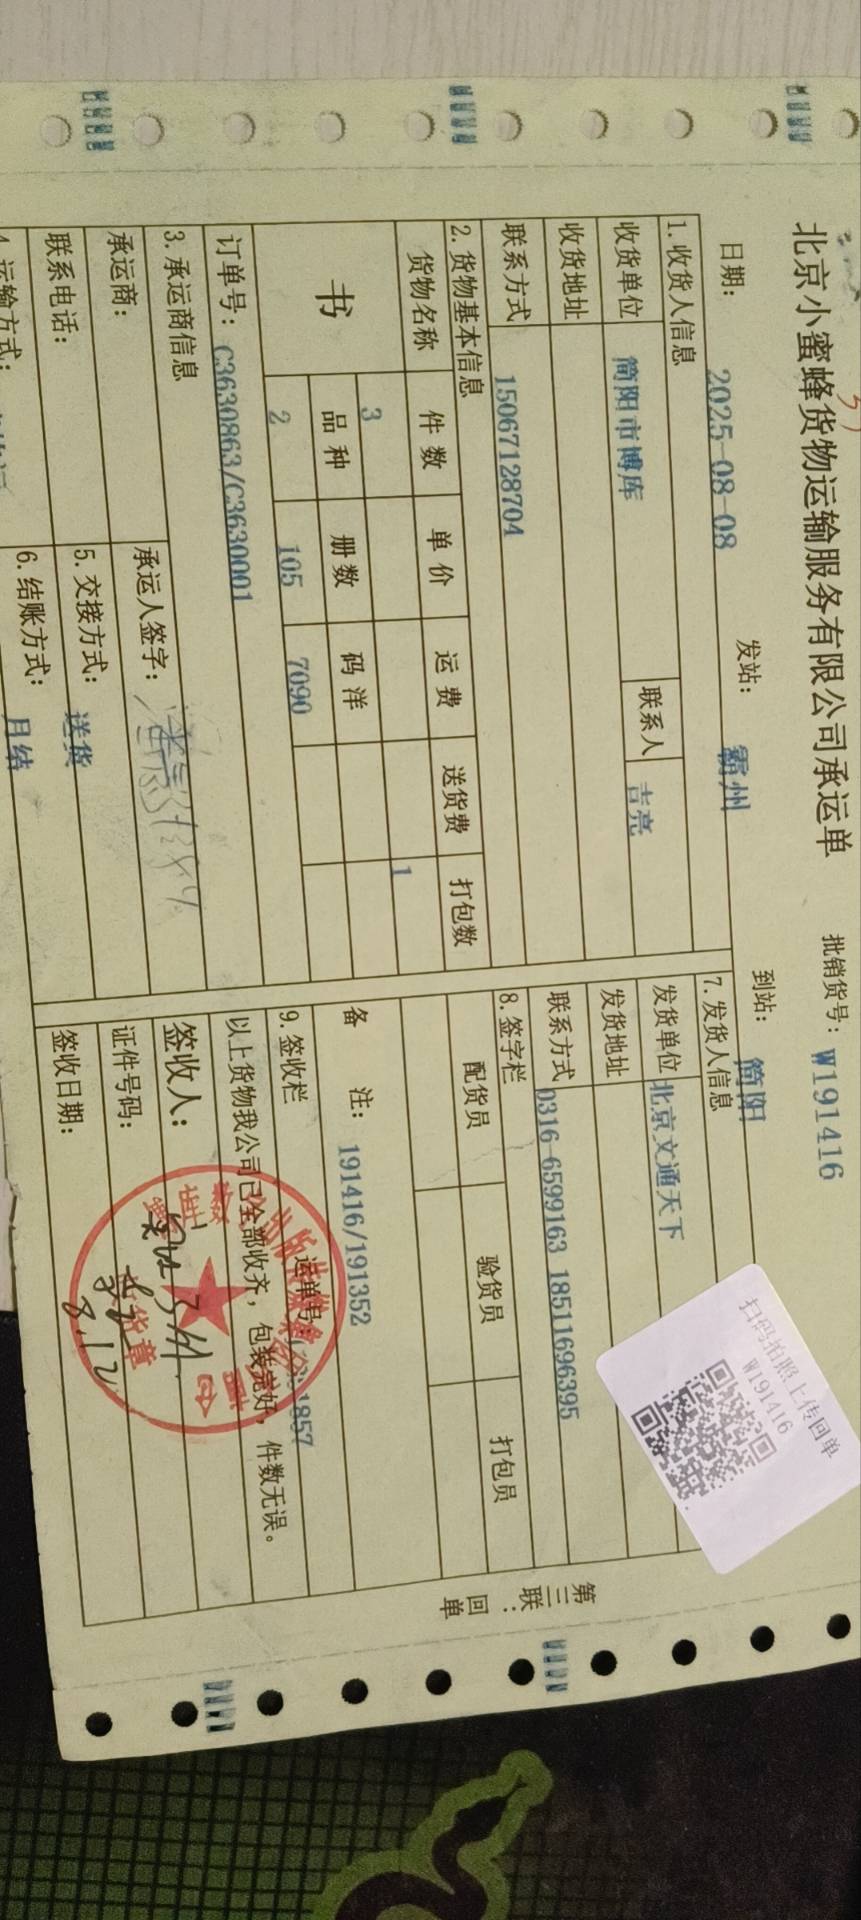 北京小蜜蜂货物运输服务有限公司承运单 批销货号: W191416
日期: 2025-08-08 发站: 霸州 到站: 简阳
1. 收货人信息
收货单位 简阳市博库 联系人 吉亮
收货地址
联系方式 15067128704
2. 货物基本信息
货物名称 件数 单价 运费 送货费 打包数
书 3 1
品种 册数 码洋
2 105 7090
订单号: C3630863/C3630001
3. 承运商信息
承运商: 承运人签字:
联系电话: 5. 交接方式: 送货
4. 运输方式: 6. 结账方式: 月结
7. 发货人信息
发货单位 北京文通天下
发货地址
联系方式 0316-6599163 18511696395
8. 签字栏
配货员 验货员 打包员
备 注: 191416/191352
9. 签收栏 运单号: 1857
以上货物我公司已全部收齐, 包装完好, 件数无误。
签收人:
证件号码:
签收日期: 8.12
收货章
第三联: 回单
扫码拍照上传回单
W191416